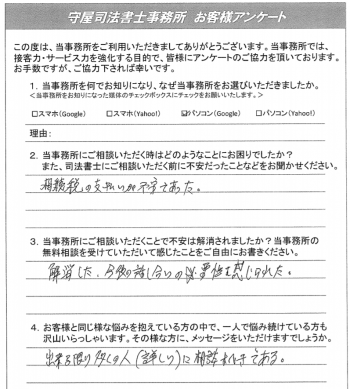 守屋司法書士事務所 お客様アンケート
この度は、当事務所をご利用いただきましてありがとうございます。当事務所では、
接客力・サービス力を強化する目的で、皆様にアンケートのご協力を頂いております。
お手数ですが、ご協力下されば幸いです。
1. 当事務所を何でお知りになり、なぜ当事務所をお選びいただきましたか。
<当事務所をお知りになった媒体のチェックボックスにチェックをお願いします。>
□スマホ(Google) □スマホ(Yahoo!) ☑パソコン(Google) □パソコン(Yahoo!)
理由:
2. 当事務所にご相談いただく時はどのようなことにお困りでしたか?
また、司法書士にご相談いただく前に不安だったことなどをお聞かせください。
相続税の支払いが不安であった。
3. 当事務所にご相談いただくことで不安は解消されましたか?当事務所の
無料相談を受けていただいて感じたことをご自由にお書きください。
解消した、今後の話し合いの必要性を感じられた。
4. お客様と同じ様な悩みを抱えている方の中で、一人で悩み続けている方も
沢山いらっしゃいます。その様な方に、メッセージをいただけますでしょうか。
出来る限り多くの人(詳しい)に相談すべきである。